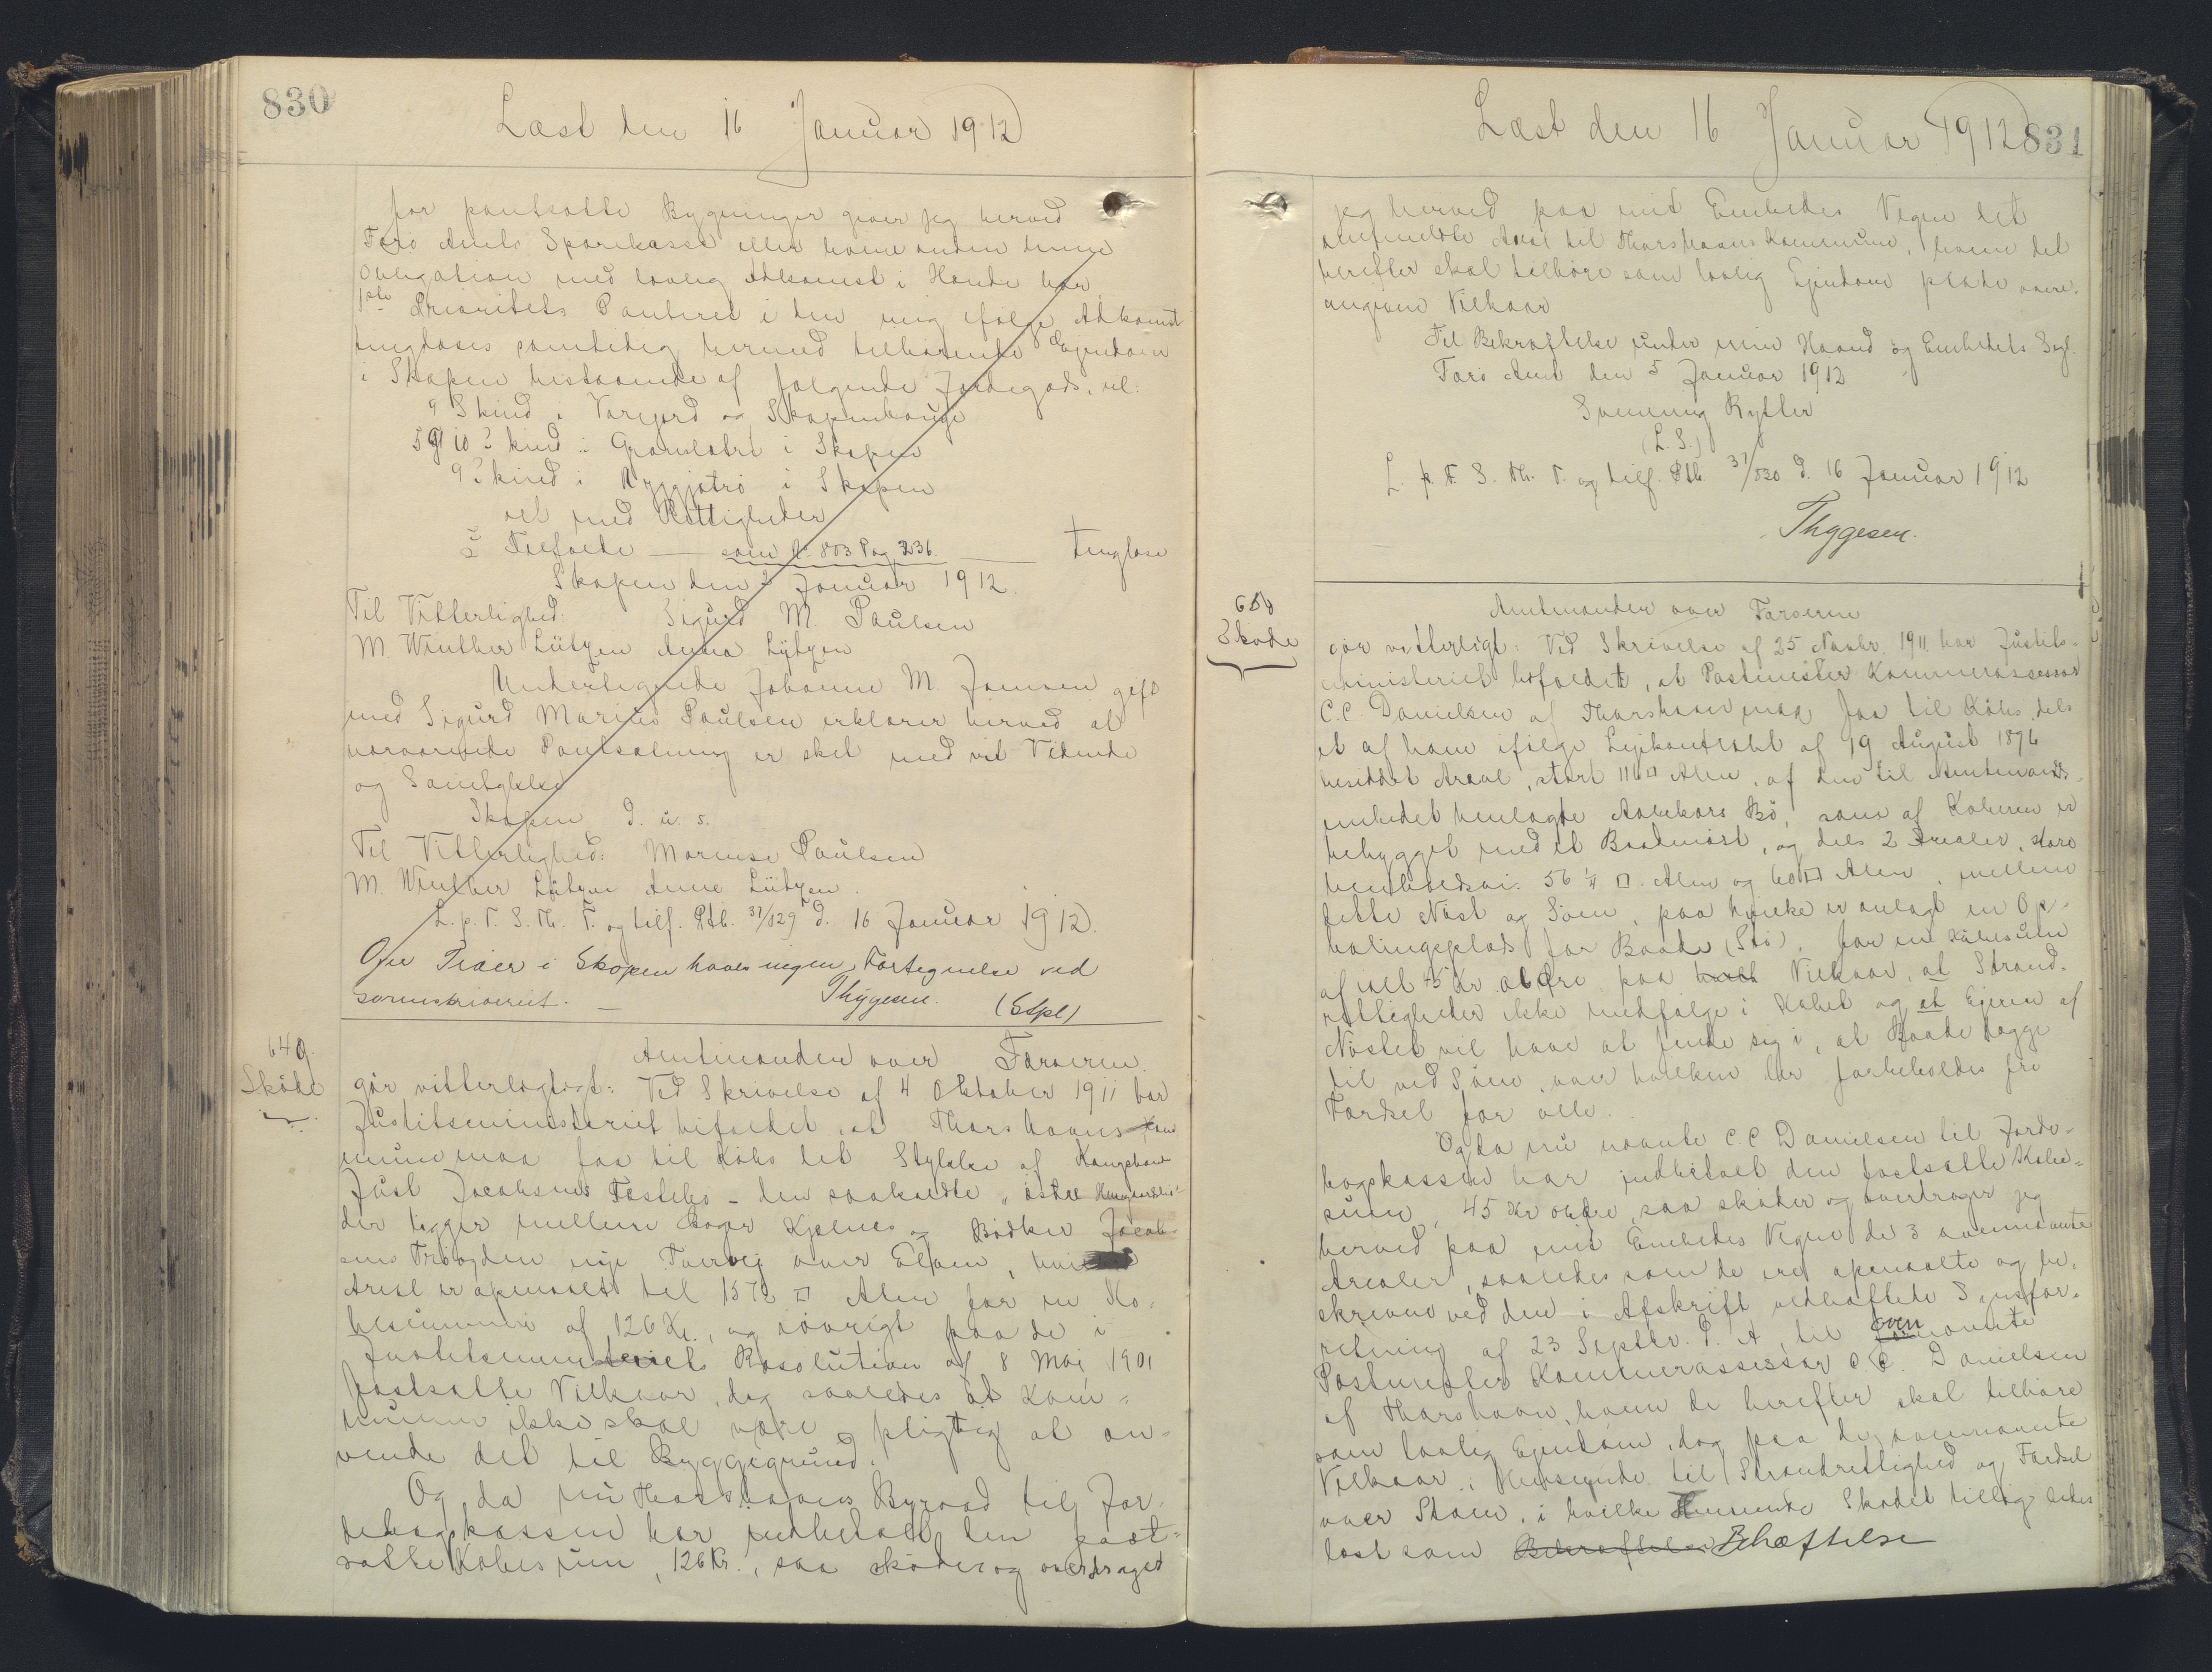 830
Læst den 16 Januar 1912
for pantsatte Bygninger giver jeg herved
Færø Amts Sparekasse eller hvem anden denne
Obligation med lovlig Adkomst i Hænde har
1ste Prioritets Panteret i den mig ifølge Adkomst
tinglæses samtidig hermed tilhørende Ejendom
i Skopen bestaaende af følgende Jordegods, al:
9 Skind i
5 Gl 10 Skind i i Skopen
9 Skind i i Skopen
alt med Rettigheder
I Tilfælde — som L. 803 Pag 236. — tinglæse
Skopen den 2 Januar 1912.
Til Vitterlighed: Sigurd M. Poulsen
M. Winther Lützen Anna Lützen
Undertegnede Johanne M. Joensen gift
med Sigurd Marius Poulsen erklærer herved at
nærværende Pantsætning er sket med mit Vidende
og Samtykke
Skopen d. u. s.
Til Vitterlighed: Poulsen
M. Winther Lützen Anna Lützen.
L. p. F. S. Th. T. og tilf. Ptb. 37/829 d. 16 Januar 1912.
Over i Skopen haves ingen Fortegnelse ved
Sorenskriveriet. — Thygesen. (Stpl)
649.
Skøde
Amtmanden over Færøerne
gør vitterlogtigt: Ved Skrivelse af 4 Oktober 1911 har
Justitsministeriet bifaldet, at Thorshavns Kom
mune maa faa til Købs det Stykke af Kongsbonde
Just Jacobsens Festebo – den saakaldte "
der ligger mellem Kjølnes og Bødker Jacob-
sens og den nye Færvej over Elven,
Areal er opmaalt til 1572 □ Alen for en Kø-
besummen af 126 Kr., og iøvrigt paa de i
Justitsministeriets Resolution af 8 Maj 1901
fastsatte Vilkaar, dog saaledes at Kom-
munen ikke skal være pligtig at an-
vende det til Byggegrund.
Og da nu Thorshavns Byraad til Jor-
debogskassen har indbetalt den fast-
satte Købesum, 126 Kr., saa skøder og overdraget
Læst den 16 Januar 1912 831
jeg herved paa mit Embedes Vegne det
ommeldte Areal til Thorshavns Kommune, hvem det
herefter skal tilhøre som lovlig Ejendom paa de oven-
angivne Vilkaar
Til Bekræftelse under min Haand og Embedets Segl.
Færø Amt den 5 Januar 1912
Svenning Rytter
(L. S.)
L. p. F. S. Th. T. og tilf. Ptb. 37/830 d. 16 Januar 1912
Thygesen.
650
Skøde
Amtmanden over Færøerne
gør vitterligt: Ved Skrivelse af 25 Novbr. 1911 har Justits-
ministeriet bifaldet, at Postmester Kammerassessor
C.C. Danielsen af Thorshavn maa faa til Købs, dels
et af ham ifølge Lejekontrakt af 19 August 1876
besiddet Areal, stort 116 □ Alen, af den til Amtmands-
embedet henlagte Bø, som af Køberen er
bebygget med et Baadenøst, og dels 2 Arealer, store
henholdsvi. 56 ¼ □ Alen og 60 □ Alen, mellem
dette Nøst og Søen, paa hvilke er anlagt en Op-
halingsplads for Baade (Stø), for en Købesum
af ialt 45 Kr. Øre paa Vilkaar, at Strand-
rettigheder ikke medfølge i Købet og at Ejeren af
Nøstet vil have at finde sig i, at Baade lægge
til ved Støen, over hvilken der forbeholdes fri
Færdsel for alle.
Og da nu nævnte C.C. Danielsen til Jorde-
bogskassen har indbetalt den fastsatte Købe-
sum, 45 Kr Øre, saa skøder og overdrager jeg
herved paa mit Embedes Vegne de 3 ovennævnte
Arealer, saaledes som de ere opmaalte og be-
skrevne ved den i Afskrift vedhæftede Synsfor-
retning af 23 Septbr. f. A., til ovennævnte
Postmester Kammerassessor C.C. Danielsen
af Thorshavn, hvem de herefter skal tilhøre
som lovlig Ejendom, dog paa de ovennævnte
Vilkaar i Henseende til Strandrettighed og Færdsel
over Støen, i hvilke Henseende Skødet tillige
læst som Behæftelse